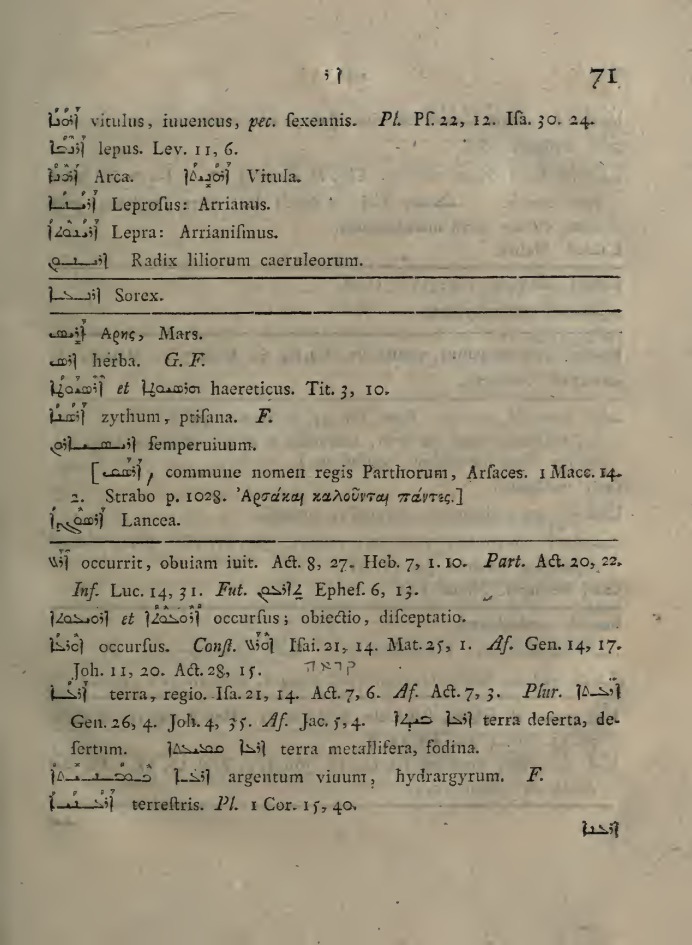 ܐܪ 71
ܐܪܘܢܐ vitulus, iuuencus, pec. ſexennis. Pl. Pſ. 22, 12. Iſa. 30. 24.
ܐܪܢܒܐ lepus. Lev. 11, 6.
ܐܪܘܢܐ Arca. ܐܪܘܢܬܐ Vitula.
ܐܪܝܢܐ Leproſus: Arrianus.
ܐܪܝܢܘܬܐ Lepra: Arrianiſmus.
Radix liliorum caeruleorum.
Sorex.
ܐܪܝܣ Αρης, Mars.
herba. G. F.
ܐܪܣܝܘܛܐ et ܗܪܣܝܘܛܐ haereticus. Tit. 3, 10.
ܐܪܣܢܐ zythum, ptiſana. F.
ſemperuiuum.
[ , commune nomen regis Parthorum, Arſaces. 1 Macc. 14.
2. Strabo p. 1028. Ἀρσάκαι καλοῦνται πάντες.]
Lancea.
ܐܪܥ occurrit, obuiam iuit. Act. 8, 27. Heb. 7, 1. 10. Part. Act. 20, 22.
Inf. Luc. 14, 31. Fut. Epheſ. 6, 13.
et occurſus; obiectio, diſceptatio.
ܐܘܪܥܐ occurſus. Conſt. ܐܘܪܥ Iſai. 21, 14. Mat. 25, 1. Af. Gen. 14, 17.
Joh. 11, 20. Act. 28, 15. קראה
ܐܪܥܐ terra, regio. Iſa. 21, 14. Act. 7, 6. Af. Act. 7, 3. Plur. ܐܪܥܬܐ
Gen. 26, 4. Joh. 4, 35. Af. Jac. 5, 4. ܐܪܥܐ terra deſerta, de-
ſertum. ܐܪܥܐ terra metallifera, fodina.
ܐܪܥܐ argentum viuum, hydrargyrum. F.
terreſtris. Pl. 1 Cor. 15, 40.
ܐܪܥܢܐ